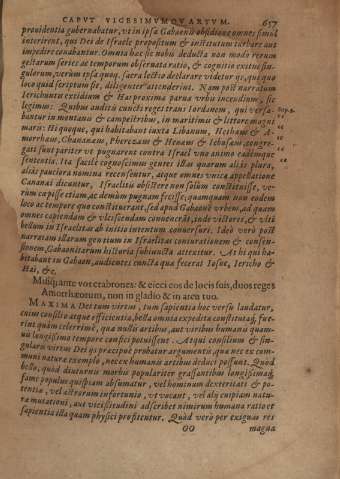 CAPVT VIGESIMVMQVARTVM. 657
prouidentia gubernabatur, vt in ipsa Gabaenis obsidione omnes simul
interirent, qui Dei de Israele propositum & institutum turbare aut
impedire conabantur. Omnia hæc sic nobis deducta non modo rerum
gestarum series ac temporum obseruata ratio, & cognitio exitus sin-
gulorum, verùm ipsa quoq; sacra lectio declarare videtur ijs, qui quo
loco quid scriptum sit, diligenter attenderint. Nam post narratum
Ierichuntis excidium & Hai proxima parua vrbis incendium, sic
legimus: Quibus auditis cuncti reges trans Iordanem, qui versa-
bantur in montanis & campestribus, in maritimis & littore magni
maris: Hi quoque, qui habitabant iuxta Libanum, Hethæus & A-
morrhæus, Chananæus, Pherezæus & Heuæus & Iebusæus, congre-
gati sunt pariter vt pugnarent contra Israel vno animo eademque
sententia. Ita facilè cognoscimus gentes illas quarum aliàs plura,
aliàs pauciora nomina recensentur, atque omnes vnica appellatione
Cananæi dicuntur, Israelitis obsistere non solùm constituisse, ve-
rùm cœpisse etiam, ac demum pugnam fecisse; quamquam non eodem
loco ac tempore quo constituerant, sed apud Gabaonè vrbem, ad quam
omnes capiendam & vlciscendam conuenerāt, inde victores, & vltò
bellum in Israelitas ab initio intentum conuersuri. Ideò verò post
narratam illarum gentium in Israelitas coniurationem & consen-
sionem, Gabaonitarum historia subiuncta attexitur. At hi qui ha-
bitabant in Gabaon, audientes cuncta quæ fecerat Iosue, Iericho &
Hai, &c.
Misiq́ante vos crabrones: & eieci eos de locis suis, duos reges
Amorrhæorum, non in gladio & in arcu tuo.
MAXIMA Dei tum virtus, tum sapientia hoc versu laudatur,
cuius consilio atque efficientia, bella omnia expedita constitēq́; fue-
rint quàm celerrimè, quæ nullis artibus, aut viribus humanis quam-
uis longissimo tempore confici potuissent. Atqui consilium & sin-
gularis virtus Dei ijs præcipuè probatur argumentis, quæ nec ex com-
muni naturæ exemplo, nec ex humanis artibus deduci possunt. Quòd
bello, quòd diuturnis morbis populariter grassantibus longissimaq́;
fame populus quispiam absumatur, vel hominum dexteritati & po-
tentiæ, vel astrorum infortunio, vt vocant, vel alij cuipiam natu-
ræ mutationi, aut vicissitudini adscribet nimirum humana ratio et
sapientia illa quam physici profitentur. Quòd verò per exiguas res
OO magna